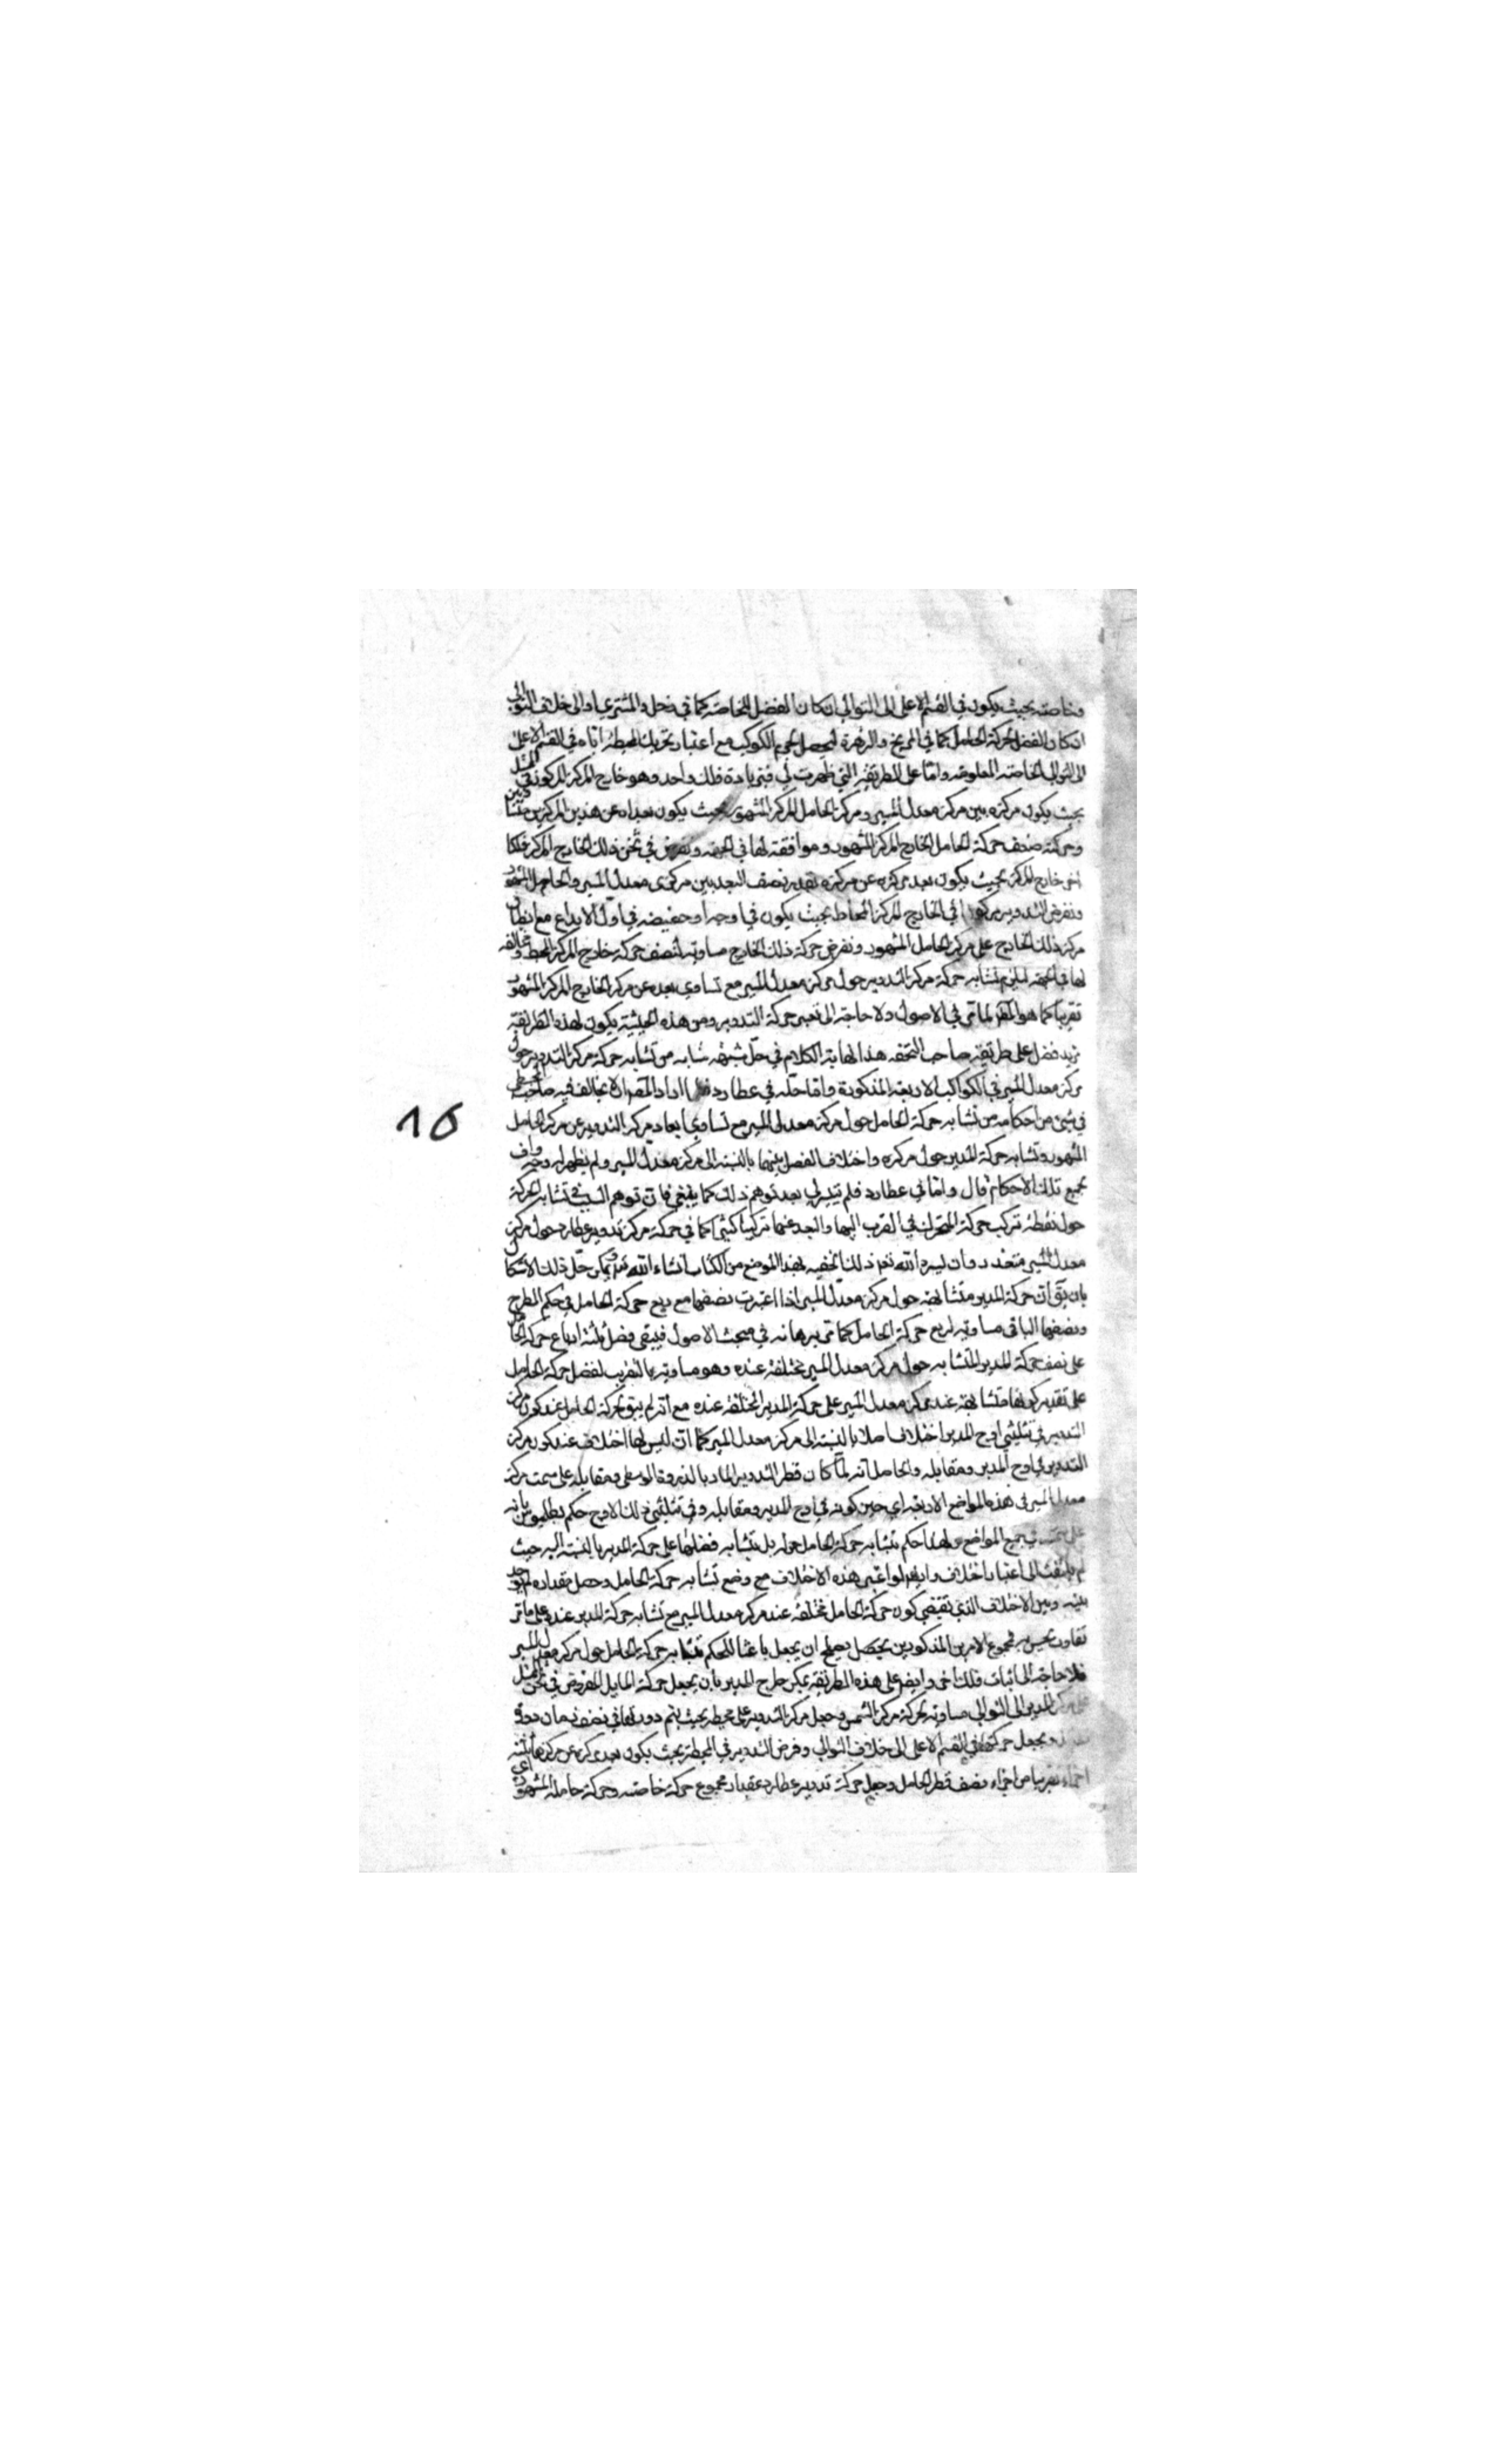 وخاصته بحيث يكون في القسم الاعلى الى التوالي ان كان الفضل للخاصة كما في زحل والمشتري او الى خلاف التوالي
ان كان الفضل لحركة الحامل كما في المريخ والزهرة ليحصل لجرم الكوكب مع اعتبار تحريك المحيطة اياه في القسم الاعلى
الى التوالي الخاصة المعلومة واما على الطريقة التي ظهرت لي فبزيادة فلك واحد وهو خارج المركز المركوز في الممثل
بحيث يكون مركزه بين مركز معدل المسير ومركز الحامل المركز المشهور بحيث يكون بعداه عن هذين المركزين
وحركته ضعف حركة الحامل الخارج المركز المشهور وموافقة لها في الجهة ونفرض في ثخن ذلك الخارج المركز فلكا
اخر خارج المركز بحيث يكون بعد مركزه عن مركزه بقدر نصف البعد بين مركزي معدل المسير والحامل المشهور
ونفرض التدوير مركوزا في الخارج المركز المحاط بحيث يكون في اوجه او حضيضه في اول الابداع مع انطباق
مركز ذلك الخارج على مركز الحامل المشهور ونفرض حركة ذلك الخارج مساوية لنصف حركة خارج المركز المحيط ومخالفة
لها في الجهة ليلزم تشابه حركة مركز التدوير حول مركز معدل المسير مع تساوي بعده عن مركز الخارج المركز المشهور
تقريبا كما هو المقرر لما مر في الاصول ولا حاجة الى تغيير حركة التدوير ومن هذه الحيثية يكون لهذه الطريقة
مزيد فضل على طريقة صاحب التحفة هذا نهاية الكلام في حل شبهة تشابه حركة مركز التدوير حول
مركز معدل المسير في الكواكب الاربعة المذكورة واما حله في عطارد اراد المقرر ان لا يخالف فيه صاحب المجسطي
في شيء من احكامه من تشابه حركة الحامل حول مركز معدل المسير مع تساوي ابعاد مركز التدوير عن مركز الحامل
المشهور وتشابه حركة المدير حول مركزه واختلاف الفصل بينهما بالنسبة الى مركز معدل المسير ولم يظهر له وجه واف
بجميع تلك الاحكام قال واما في عطارد فلم يتيسر لي بعد توهم ذلك كما ينبغي فان توهم السبب في تشابه الحركة
حول نقطة تركب حركة المتحرك في القرب اليها والبعد عنها تركيبا كثيرا كما في حركة مركز تدوير عطارد حول مركز
معدل المسير متعذر وان يسره الله تعالى ذلك الحقته بهذا الموضع من الكتاب انشاء الله تعالى ويمكن حل ذلك الاشكال
بان يق ان حركة المدير متشابهة حول مركز معدل المسير اذا اعتبرت نصفها مع ربع حركة الحامل في حكم المطرح
ونصفها الباقي مساوية لربع حركة الحامل كما مر برهانه في مبحث الاصول فيبقى فضل ثلثة ارباع حركة الحامل
على نصف حركة المدير المتشابه حول مركز معدل المسير مختلفة عنده وهو مساوية بالتقريب لفضل حركة الحامل
على تقدير كونها متشابهة عند مركز معدل المسير على حركة المدير المختلفة عنده مع انه لم يبق لحركة الحامل عند كون مركز
التدوير في تثليثي اوج المدير اختلاف اصلا بالنسبة الى مركز معدل المسير كما ان ليس لها اختلاف عند كون مركز
التدوير في اوج المدير ومقابله والحاصل انه لما كان قطر التدوير المار بالذروة الوسطى ومقابله على سمت مركز
معدل المسير في هذه المواضع الاربعة اي حين كونه في اوج المدير ومقابله وفي تثليثي ذلك الاوج حكم بطليموس بانه
على سمته في جميع المواضع ولهذا حكم بتشابه حركة الحامل حوله بل بتشابه فضلها على حركة المدير بالنسبة اليه حيث
لم يلتفت الى اعتبار اختلاف وايضا لو اعتبر هذه الاختلاف مع وضع تشابه حركة الحامل وحصل مقداره لم يوجد
بينه وبين الاختلاف الذي يقتضي كون حركة الحامل مختلفة عند مركز معدل المسير مع تشابه حركة المدير عنده على ما مر
تفاوت يحس به فمجموع الامرين المذكورين يصلح ان يجعل باعثا للحكم بتشابه حركة الحامل حول مركز معدل المسير
فلا حاجة الى اثبات فلك اخر وايضا على هذه الطريقة يمكن طرح المدير بان يجعل حركة المايل المفروض في ثخن الممثل
على مركز المدير الى التوالي مساوية لحركة مركز الشمس وجعل مركز التدوير على محيطه بحيث يتم دورتها في نصف زمان دورة
ويجعل حركتها في القسم الاعلى الى خلاف التوالي وفرض التدوير في المحيطة بحيث يكون بعد مركزه عن مركزها ثلثة
اجزاء تقريبا من اجزاء نصف قطر الحامل وجعل حركة تدوير عطارد بمقدار مجموع حركة خاصته وحركة حامله المشهورة
16